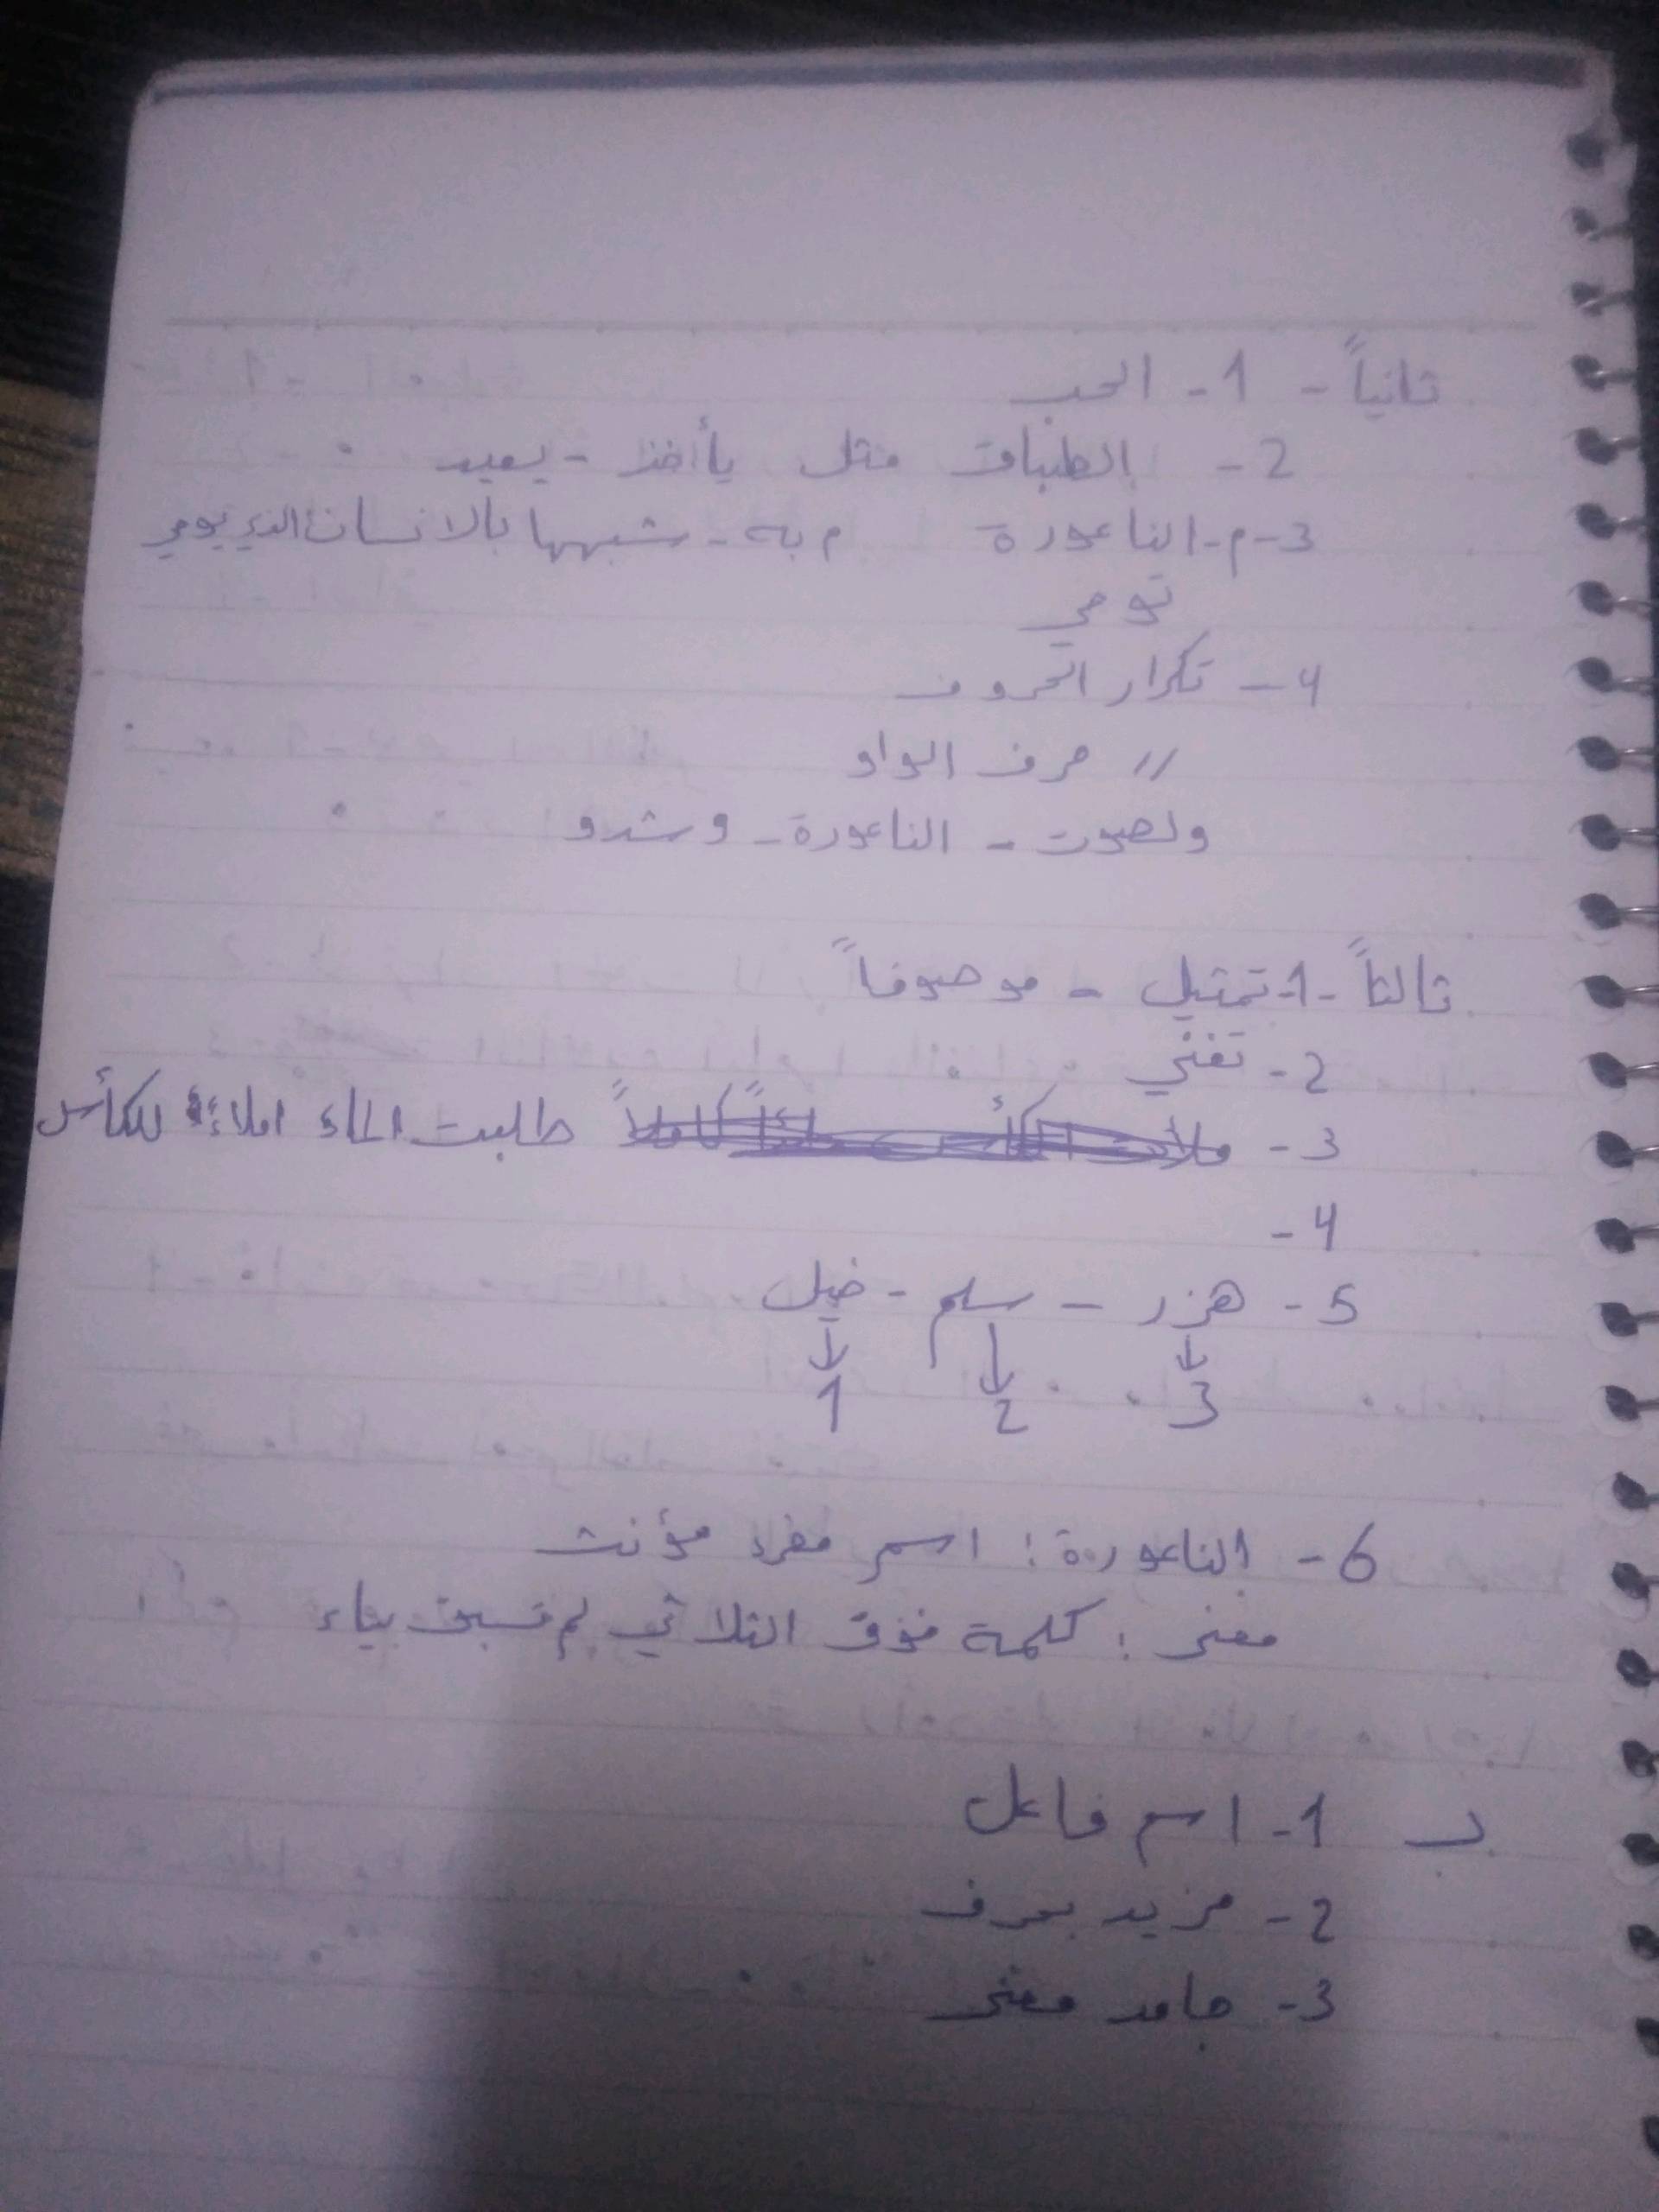 ثانياً - 1- الحب
2- الطباق مثل يأخذ - يعيد .
3- م- الناعورة م به - شبهها بالانسان الذي يومي
تومي
4- تكرار الحروف
// حرف الواو
ولصوت - الناعورة - وشدو
ثالثاً -1- تمثيل - موصوفاً
2- تغني
3- طلبت الماء املاءً للكأس
4-
5- هزر - سلم - خيل
3 2 1
6- الناعورة : اسم مفرد مؤنث
مغنى : كلمة فوق الثلاثي لم تسبق بياء
ب 1- اسم فاعل
2- مزيد بحرف
3- جامد معنى